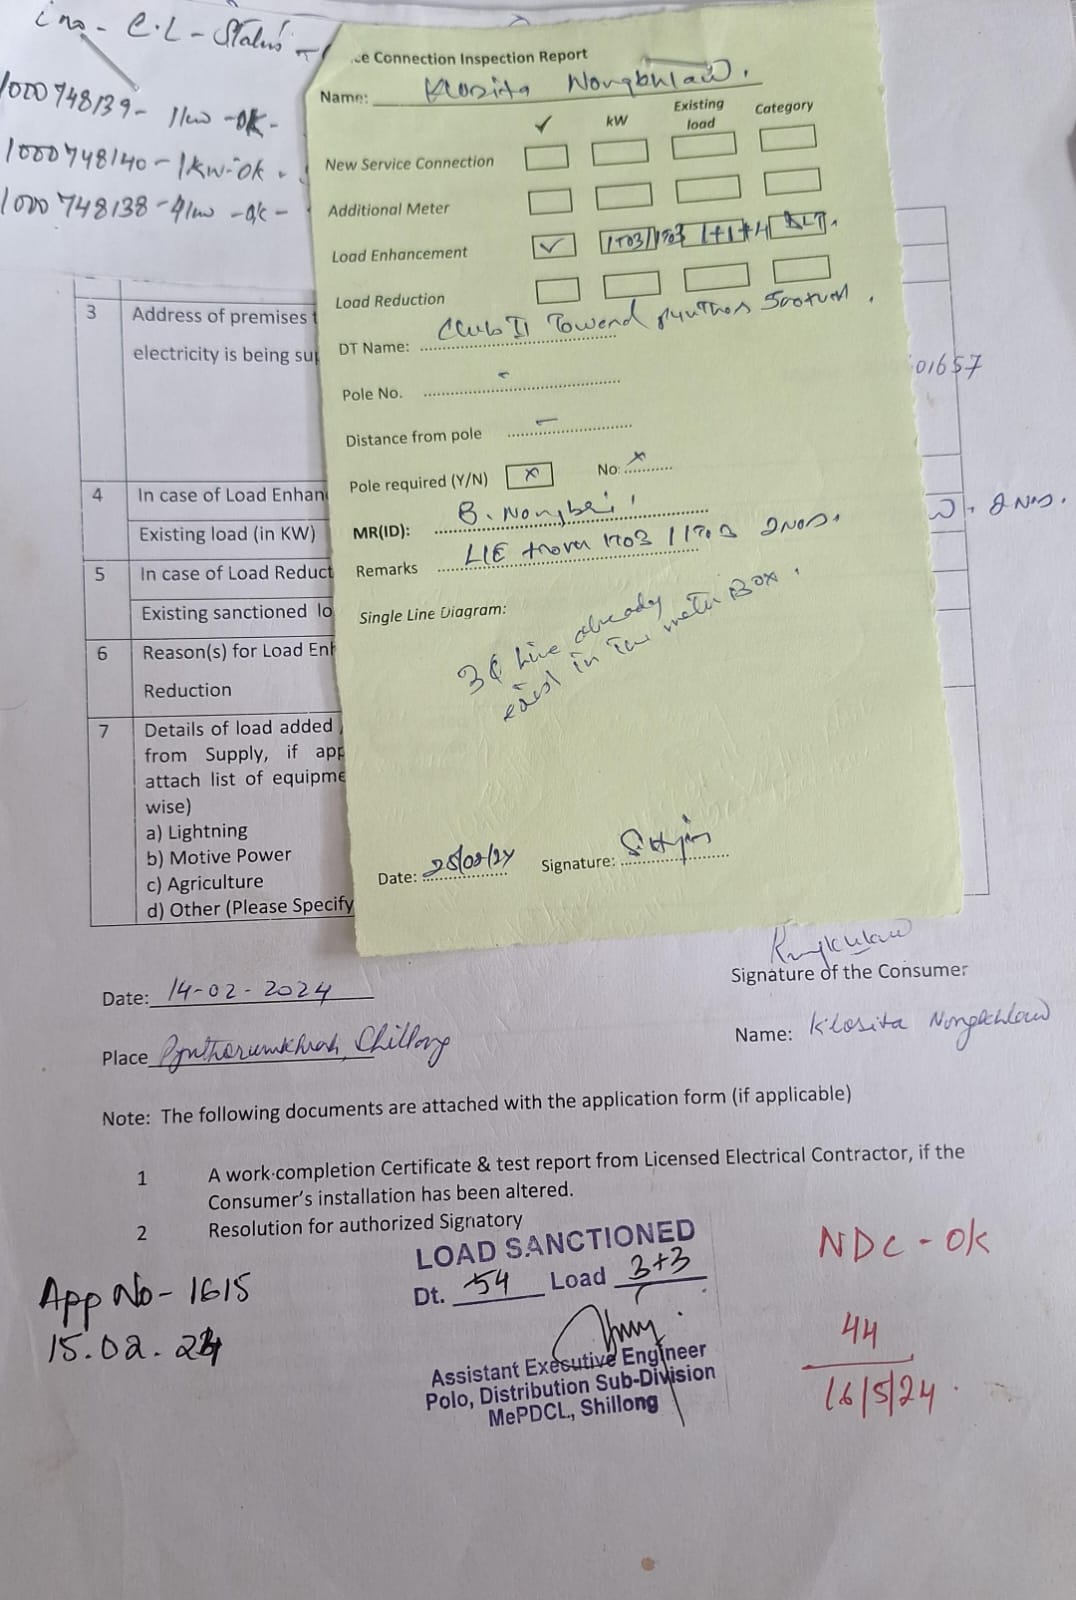 C.L - Status
1000748139 - 1kw - OK -
1000748140 - 1kw - ok -
1000748138 - 4kw - ok -
ce Connection Inspection Report
Name: Klosita Nongbhlaw.
✓ kW Existing load Category
New Service Connection
Additional Meter
Load Enhancement ✓ 1TO3/1TO3 1+1+4 DLT.
Load Reduction
DT Name: Club II Toward
Pole No. -
Distance from pole -
Pole required (Y/N) x No: x
MR(ID): B. Nongbri
Remarks L/E from 1TO3 / 1TO3 2Nos.
Single Line Diagram:
3¢ line already
exist in the meter Box.
Date: 28/02/24 Signature:
3 Address of premises t
electricity is being sup
01657
4 In case of Load Enhan
Existing load (in KW)
2 Nos.
5 In case of Load Reduct
Existing sanctioned lo
6 Reason(s) for Load Enh
Reduction
7 Details of load added
from Supply, if app
attach list of equipme
wise)
a) Lightning
b) Motive Power
c) Agriculture
d) Other (Please Specify
Signature of the Consumer
Date: 14-02-2024
Name: Klosita Nongbhlaw
Place Pynthorumkhrah, Shillong
Note: The following documents are attached with the application form (if applicable)
1 A work-completion Certificate & test report from Licensed Electrical Contractor, if the
Consumer's installation has been altered.
2 Resolution for authorized Signatory
LOAD SANCTIONED
Dt. 54 Load 3+3
Assistant Executive Engineer
Polo, Distribution Sub-Division
MePDCL, Shillong
App No - 1615
15.02.24
NDC - Ok
44
16/5/24.